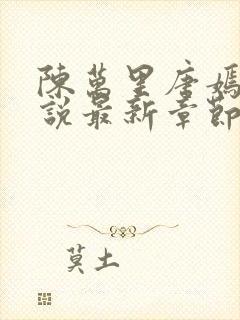 陳萬里唐嫣
說最新章節
莫土